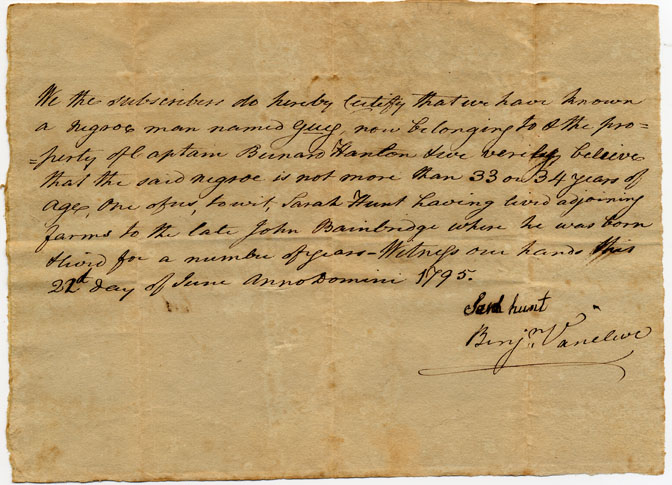 We the subscribers do hereby Certify that we have known
a negroe man named Guy, now belonging to & the pro-
=perty of Captain Bernard Hanlon & we verily believe
that the said negroe is not more than 33 or 34 years of
age, One of us, to wit, Sarah Hunt having lived adjoining
farms to the late John Bainbridge where he was born
& lived for a number of years - Witness our hands this
22d day of June Anno Domini 1795.
Sarah hunt
Benjn. Vancleve